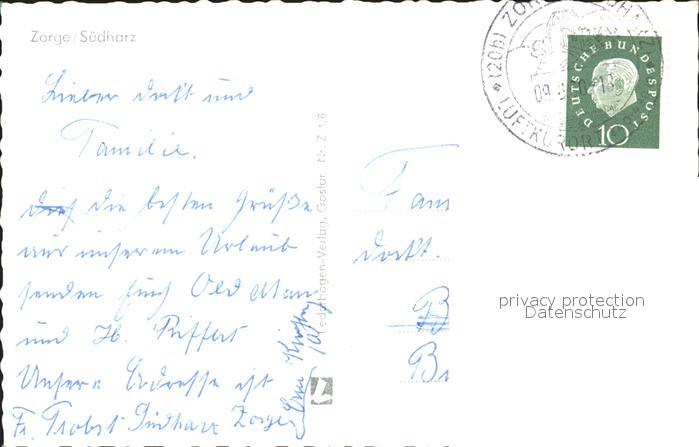 Zorge/Südharz
Lieber
und
Familie.
die besten Grüße
aus unserem Urlaub
senden Euch Old Man
und H. Piffert
Unsere Adresse ist
Fr. Probst Südharz Zorge
Nr. Z 1/8
Lederbogen-Verlag, Goslar
(20b) ZORGE SÜDHARZ
LUFTKURORT
09.
DEUTSCHE BUNDESPOST
10
Fam
B
Br
privacy protection
Datenschutz